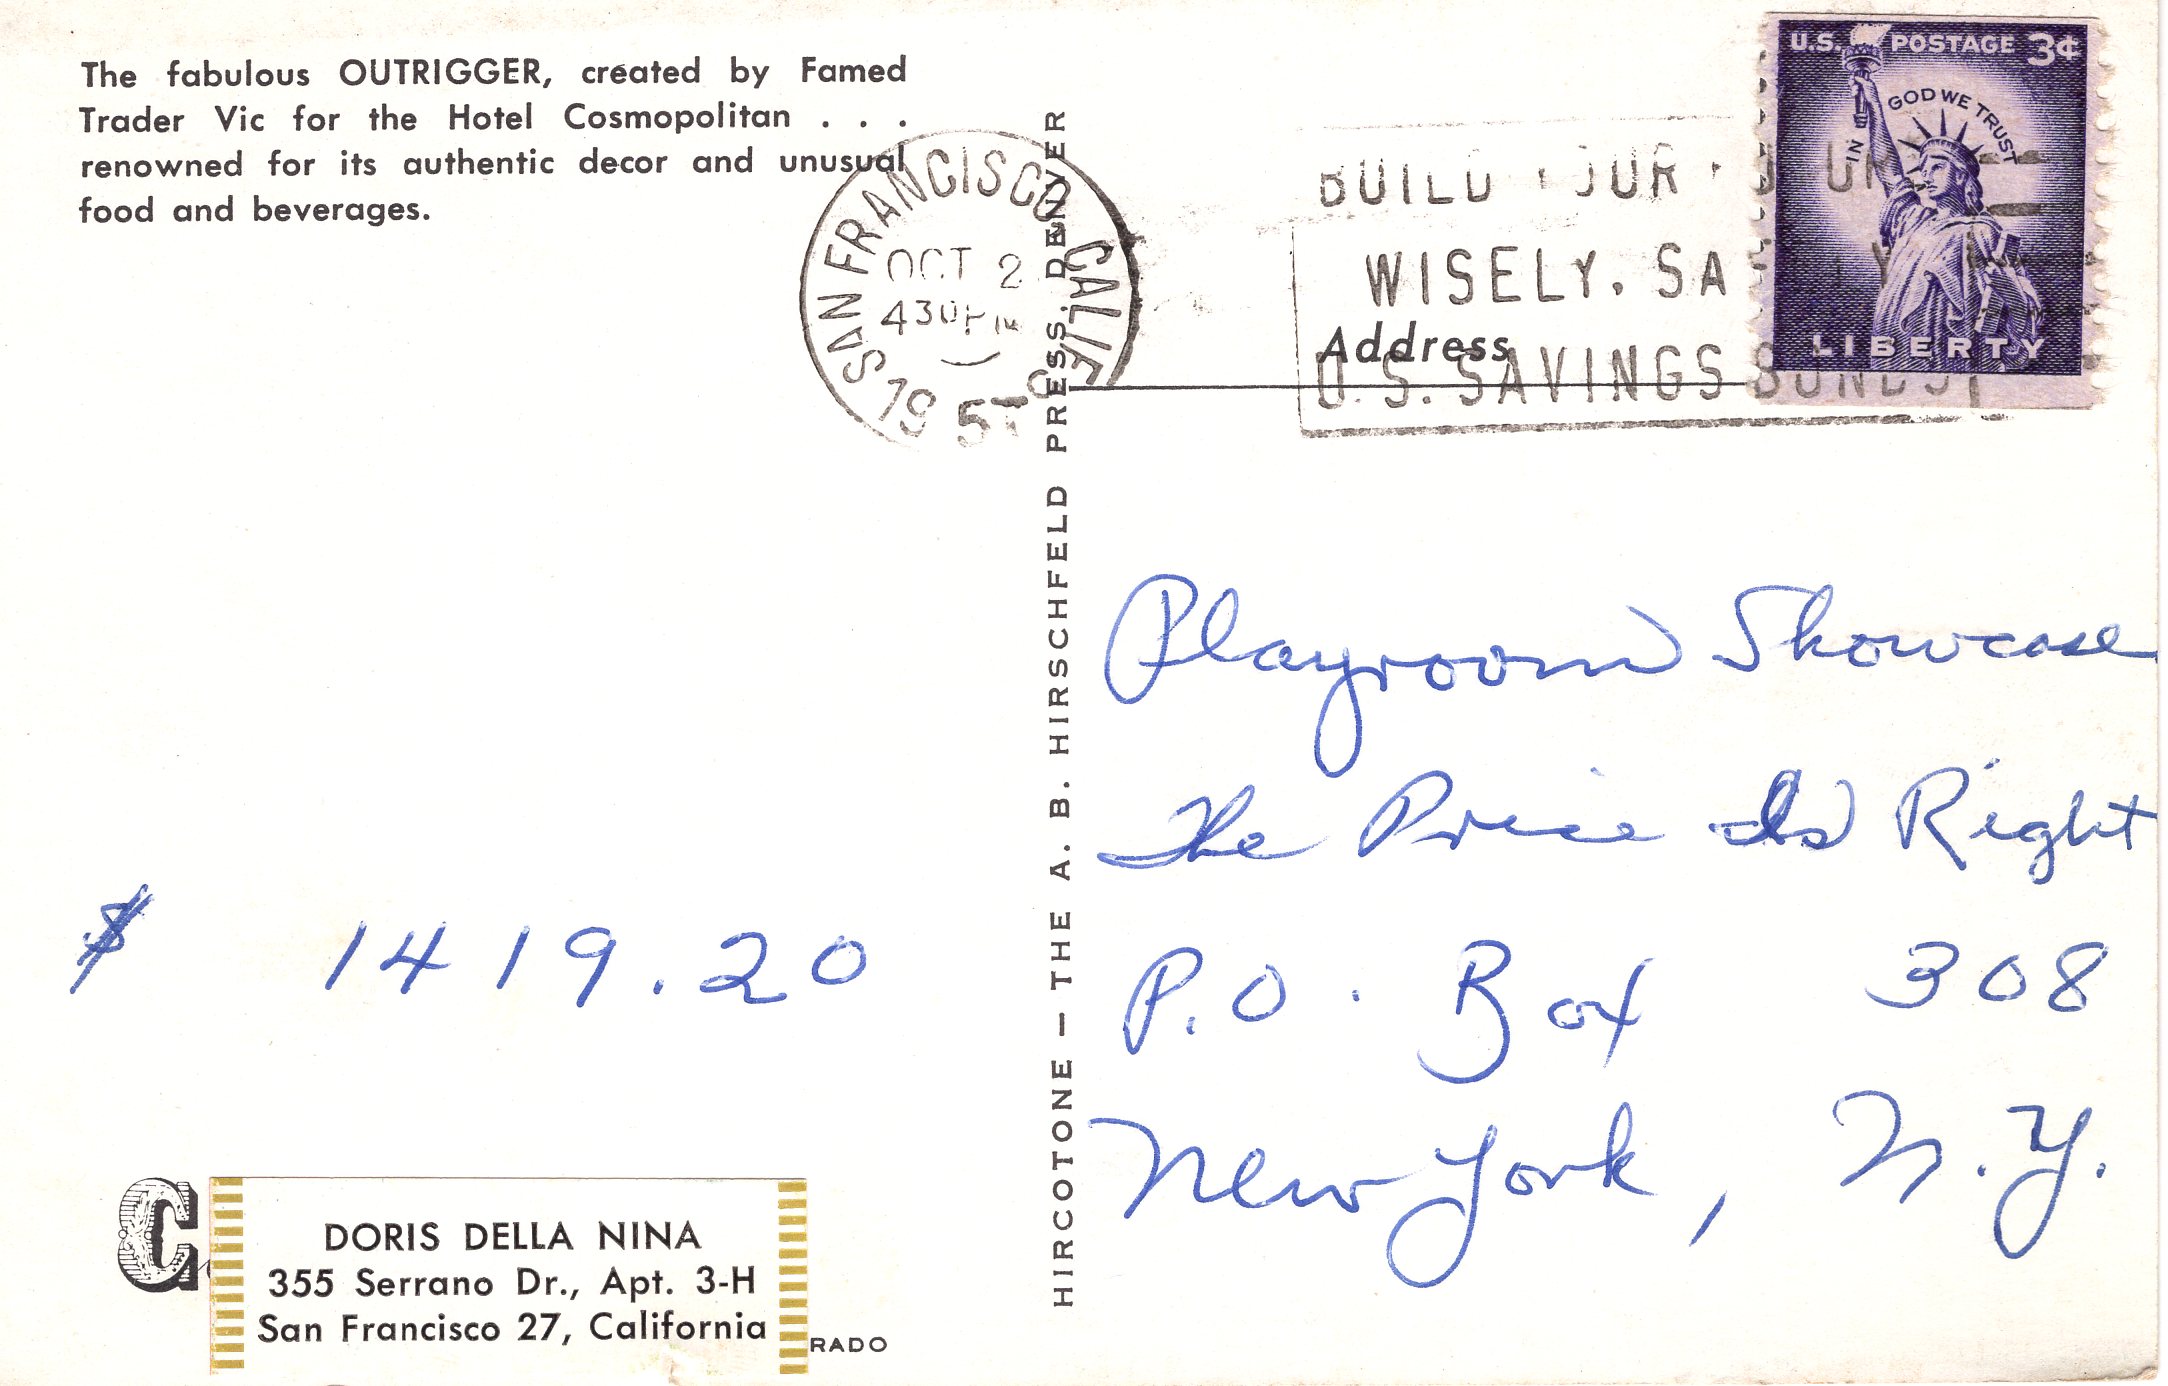 The fabulous OUTRIGGER, created by Famed
Trader Vic for the Hotel Cosmopolitan . . .
renowned for its authentic decor and unusual
food and beverages.
SAN FRANCISCO CALIF
OCT 2
430PM
195
BUILD YOUR
WISELY. SA
U.S. SAVINGS BONDS
U.S. POSTAGE 3¢
IN GOD WE TRUST
LIBERTY
Address
HIRCOTONE — THE A. B. HIRSCHFELD PRESS, DENVER
Playroom Showcase
The Price Is Right
P.O. Box 308
New York, N.Y.
$ 1419.20
C
DORIS DELLA NINA
355 Serrano Dr., Apt. 3-H
San Francisco 27, California
RADO